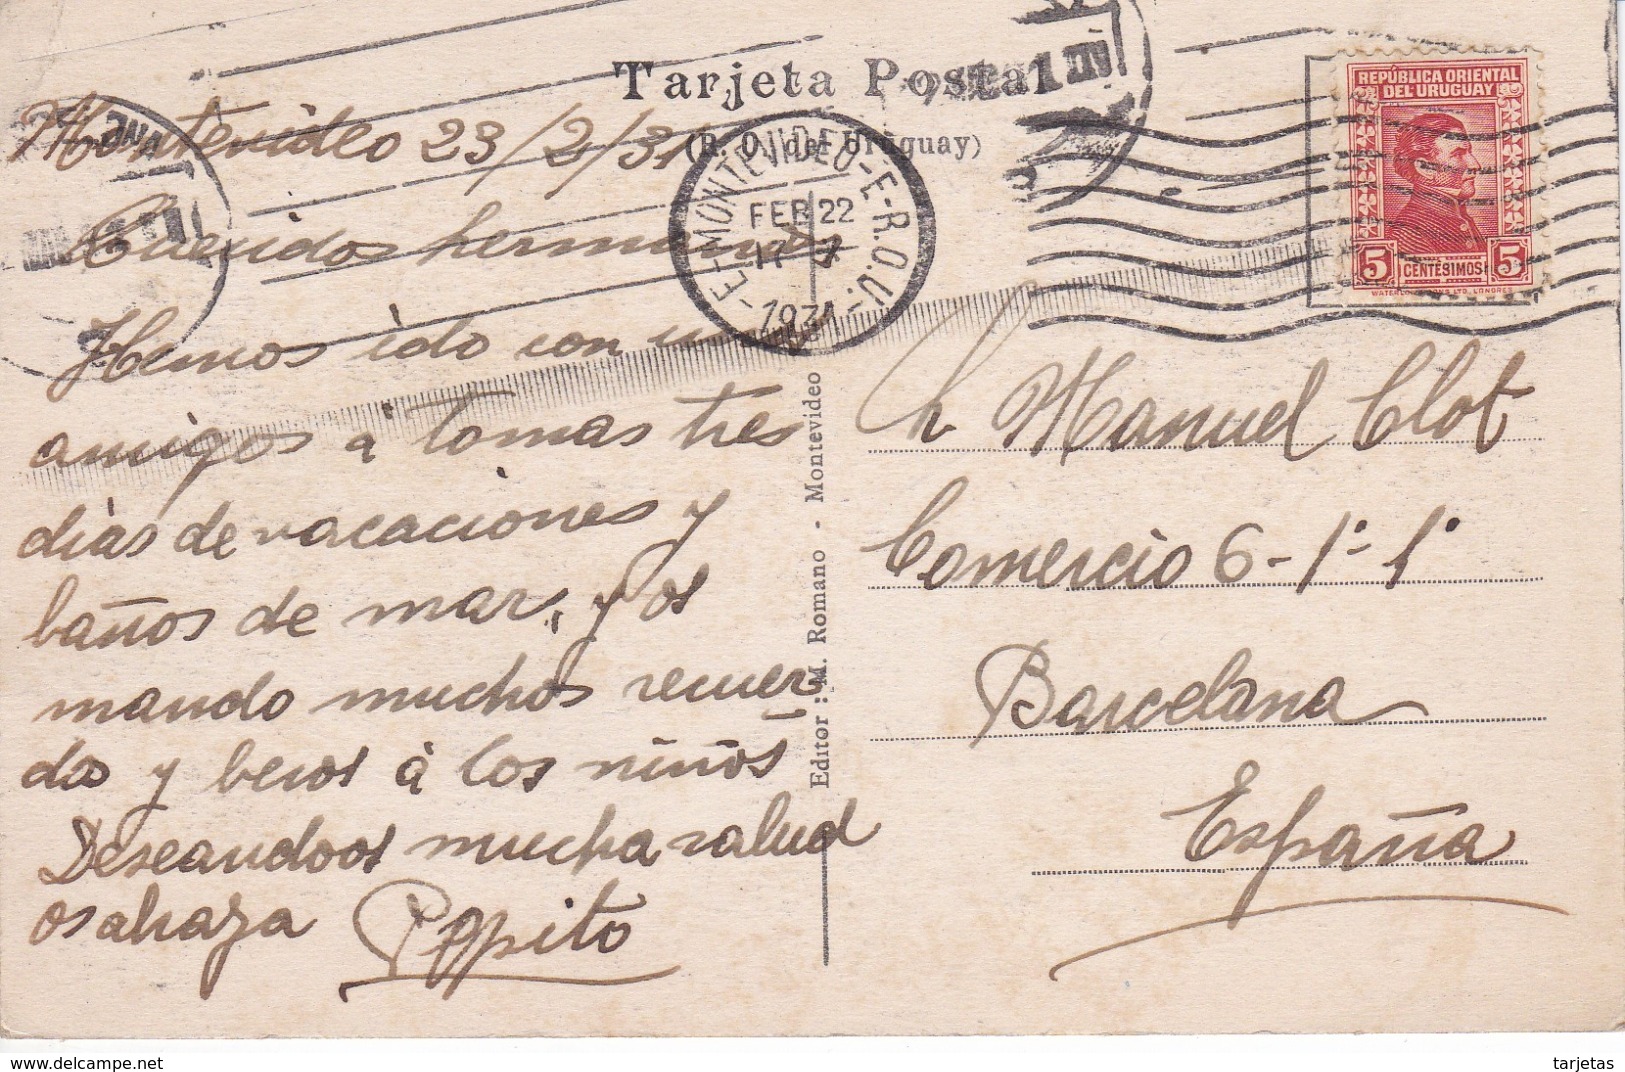 Tarjeta Postal
(R. O. del Uruguay)
Montevideo 23/2/31
Queridos hermanos
Hemos ido con u
amigos á tomas tres
días de vacaciones y
baños de mar, y os
mando muchos recuer
dos y besos á los niños
Deseandoos mucha salud
os abraza Pepito
E-MONTEVIDEO-E-R.O.U.-
FEB 22
17
1931
REPÚBLICA ORIENTAL
DEL URUGUAY
5 CENTÉSIMOS 5
Editor : M. Romano - Montevideo
Sr Manuel Clot
Comercio 6-1º-1º
Barcelona
España
www.delcampe.net
tarjetas